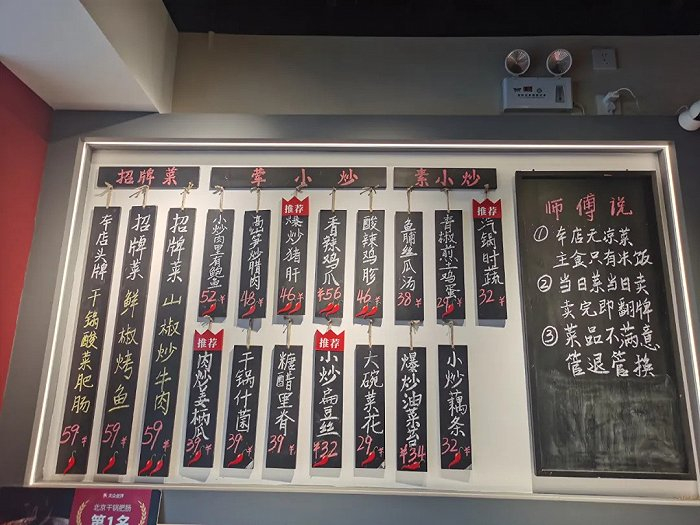 招牌菜
荤小炒
素小炒
本店头牌 干锅酸菜肥肠
59¥
招牌菜 鲜椒烤鱼
59¥
招牌菜 山椒炒牛肉
59¥
小炒肉里有鲍鱼
52¥
高笋炒腊肉
48¥
推荐
爆炒猪肝
46¥
香辣鸡爪
¥56
酸辣鸡胗
46¥
鱼脯丝瓜汤
38¥
青椒煎土鸡蛋
29¥
推荐
汽锅时蔬
32¥
推荐
肉炒姜柄瓜
39¥
干锅什菌
39¥
糖醋里脊
39¥
推荐
小炒扁豆丝
¥32
大碗菜花
29¥
爆炒油菜苔
¥34
小炒藕条
32¥
师傅说
①本店无凉菜
主食只有米饭
②当日菜当日卖
卖完即翻牌
③菜品不满意
管退管换
大众点评
北京干锅肥肠
第1名